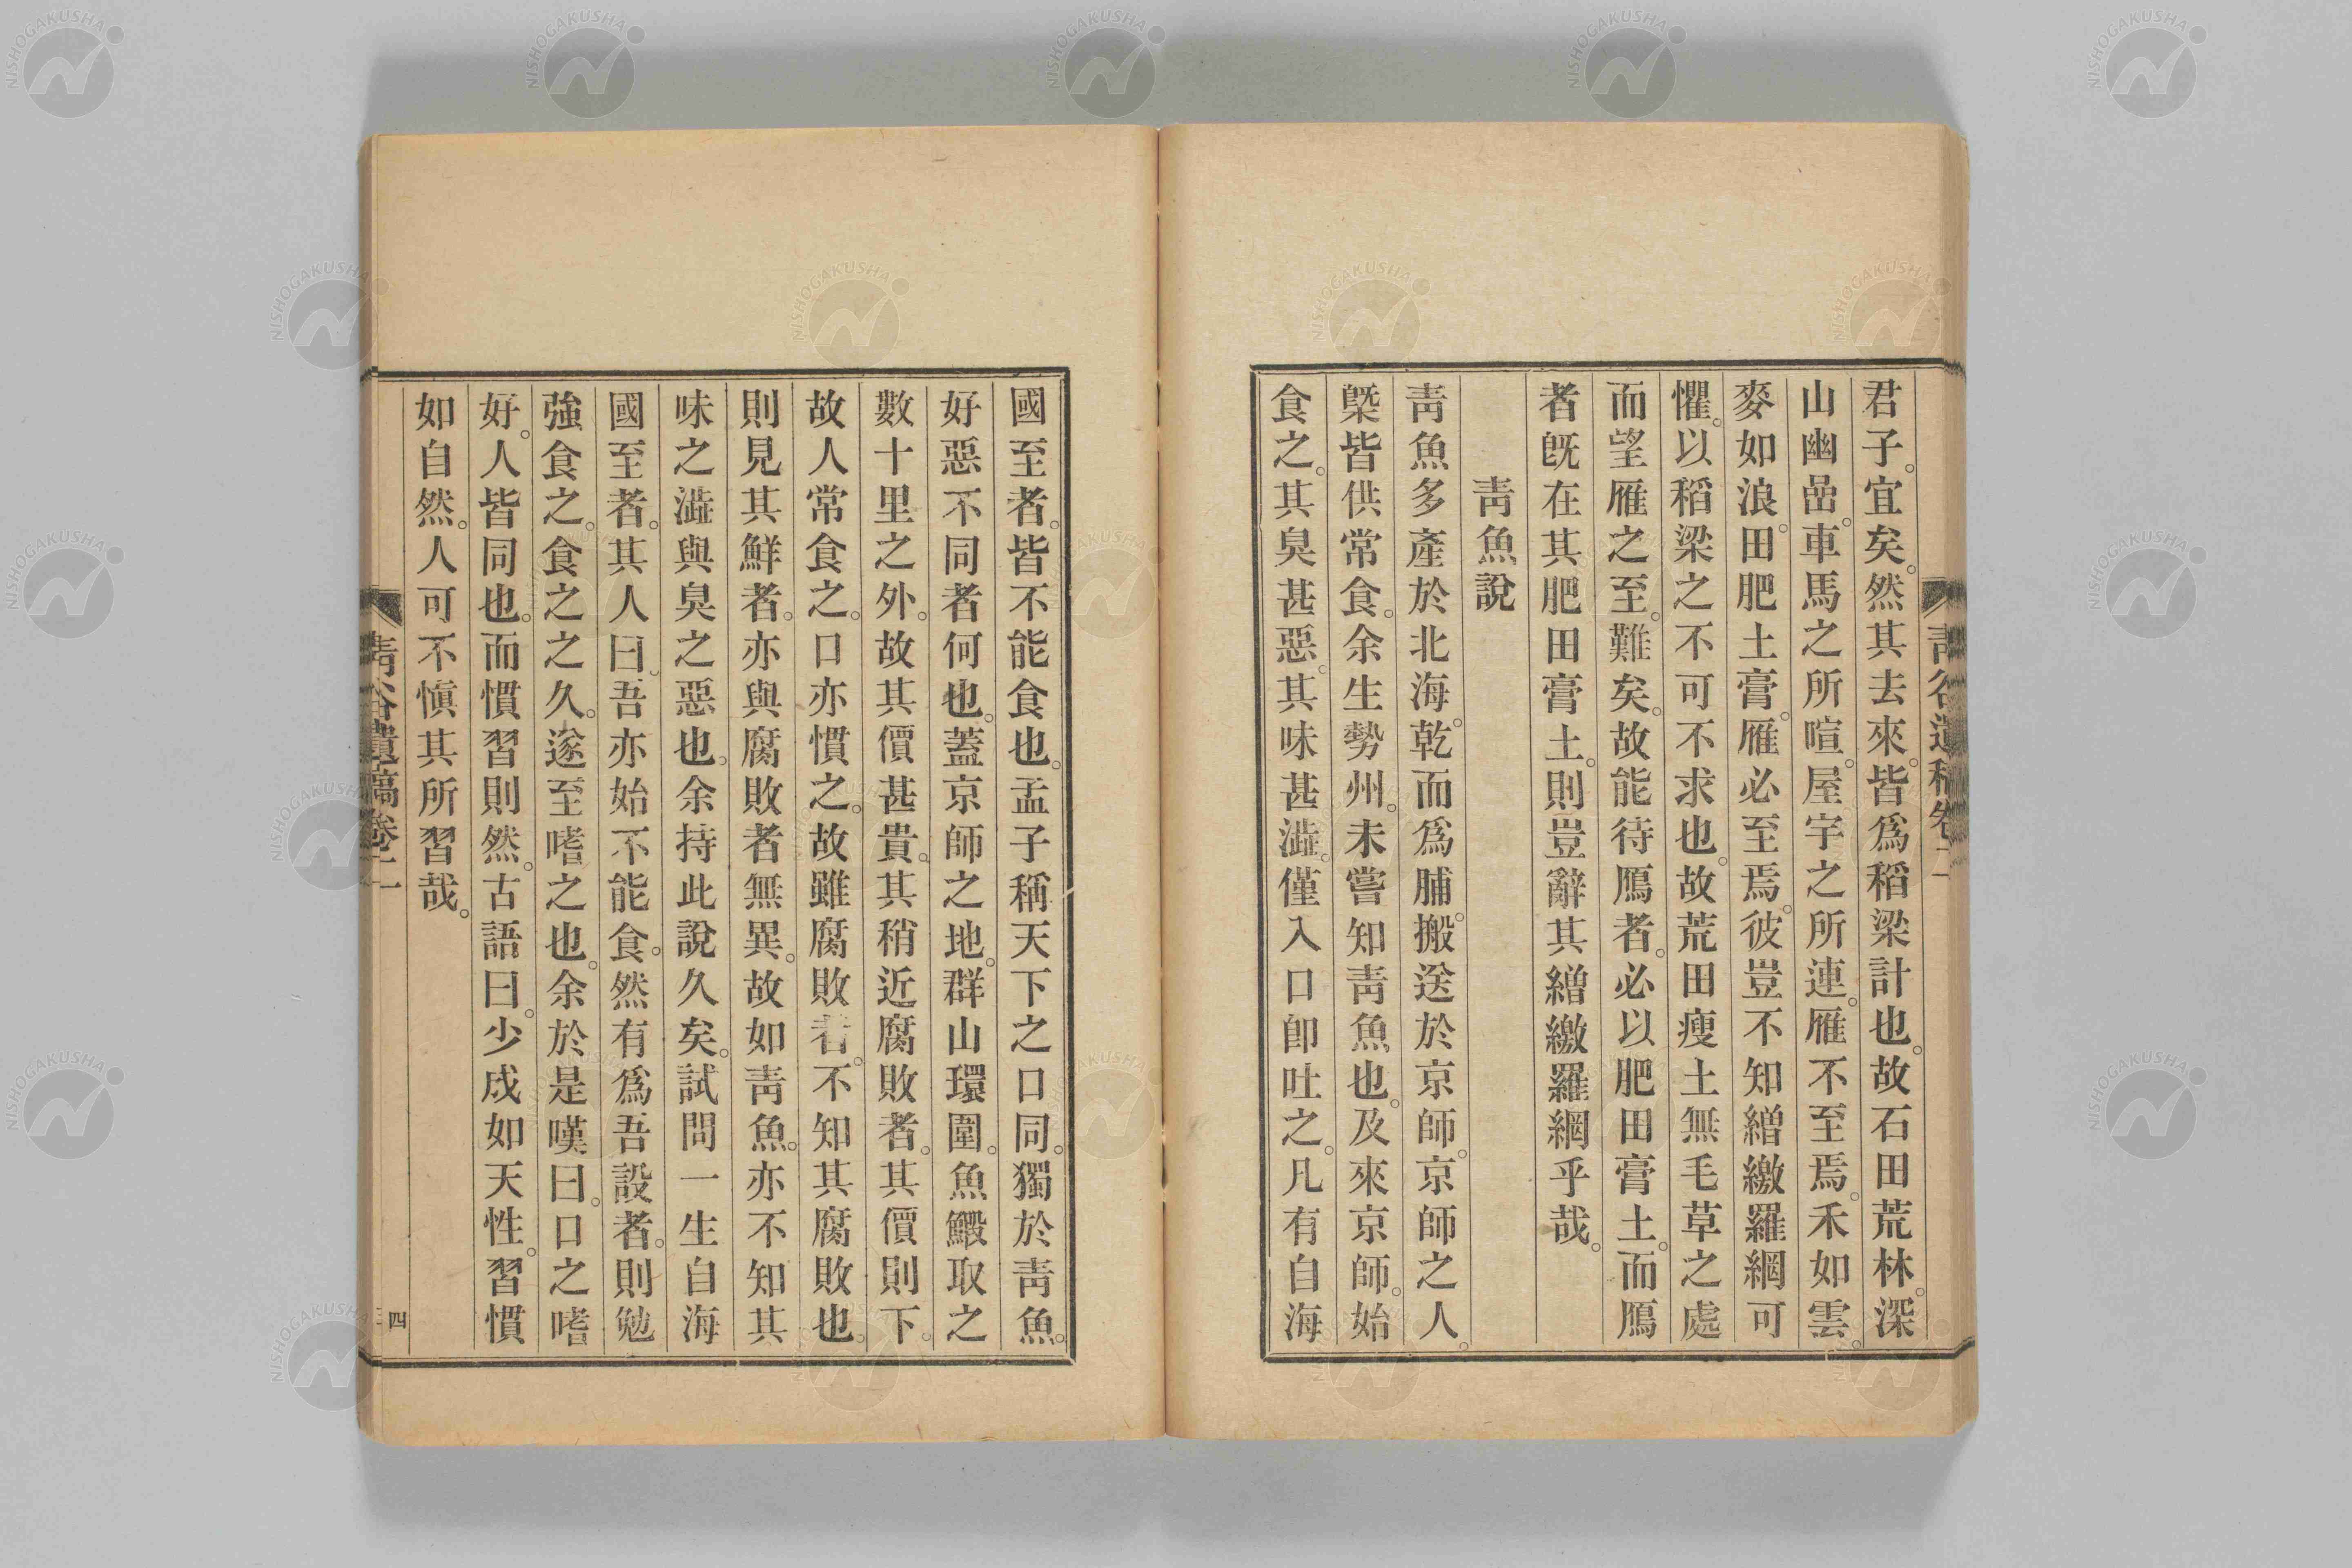 君子。宜矣。然其去來。皆爲稻粱計也。故石田荒林。深
山幽嵒。車馬之所喧。屋宇之所連。雁不至焉。禾如雲。
麥如浪。田肥土膏。雁必至焉。彼豈不知繒繳羅網可
懼。以稻粱之不可不求也。故荒田瘦土無毛草之處
而望雁之至。難矣。故能待鴈者。必以肥田膏土。而鴈
者旣在其肥田膏土。則豈辭其繒繳羅網乎哉。
靑魚說
靑魚多產於北海。乾而爲脯。搬送於京師。京師之人。
槩皆供常食。余生勢州。未嘗知靑魚也。及來京師。始
食之。其臭甚惡。其味甚澁。僅入口卽吐之。凡有自海
靑谷遺稿卷二
國至者。皆不能食也。孟子稱天下之口同。獨於靑魚。
好惡不同者何也。蓋京師之地。群山環圍。魚鰕取之
數十里之外。故其價甚貴。其稍近腐敗者。其價則下。
故人常食之。口亦慣之。故雖腐敗者。不知其腐敗也。
則見其鮮者。亦與腐敗者無異。故如靑魚。亦不知其
味之澁與臭之惡也。余持此說久矣。試問一生自海
國至者。其人曰。吾亦始不能食。然有爲吾設者。則勉
強食之。食之之久。遂至嗜之也。余於是嘆曰。口之嗜
好。人皆同也。而慣習則然。古語曰。少成如天性。習慣
如自然。人可不愼其所習哉。
靑谷遺稿卷二
四
NISHOGAKUSHA